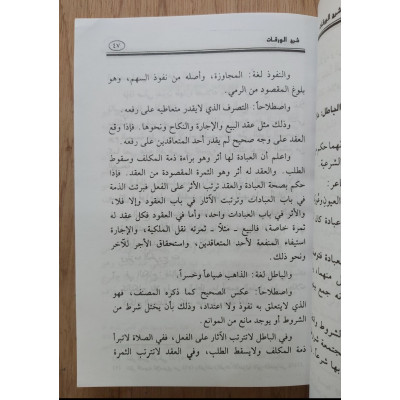 شرح الورقات
٤٧
والنفوذ لغة: المجاوزة، وأصله من نفوذ السهم، وهو
بلوغ المقصود من الرمي.
واصطلاحاً: التصرف الذي لايقدر متعاطيه على رفعه.
وذلك مثل عقد البيع والإجارة والنكاح ونحوها. فإذا وقع
العقد على وجه صحيح لم يقدر أحد المتعاقدين على رفعه.
واعلم أن العبادة لها أثر وهو براءة ذمة المكلف وسقوط
الطلب. والعقد له أثر وهو الثمرة المقصودة من العقد. فإذا
حكم بصحة العبادة والعقد ترتب الأثر على الفعل فبرئت الذمة
في باب العبادات وترتبت الآثار في باب العقود وإلا فلا،
والأثر في باب العبادات واحد، وأما في العقود فكل عقد له
ثمرة خاصة، فالبيع - مثلاً - ثمرته نقل الملكية، والإجارة
استيفاء المنفعة لأحد المتعاقدين، واستحقاق الأجر للآخر
ونحو ذلك.
والباطل لغة: الذاهب ضياعاً وخسراً.
واصطلاحاً: عكس الصحيح كما ذكره المصنف، فهو
الذي لايتعلق به نفوذ ولا اعتداد، وذلك بأن يختل شرط من
الشروط أو يوجد مانع من الموانع.
وفي الباطل لاتترتب الآثار على الفعل، ففي الصلاة لاتبرأ
ذمة المكلف ولايسقط الطلب، وفي العقد لاتترتب الثمرة